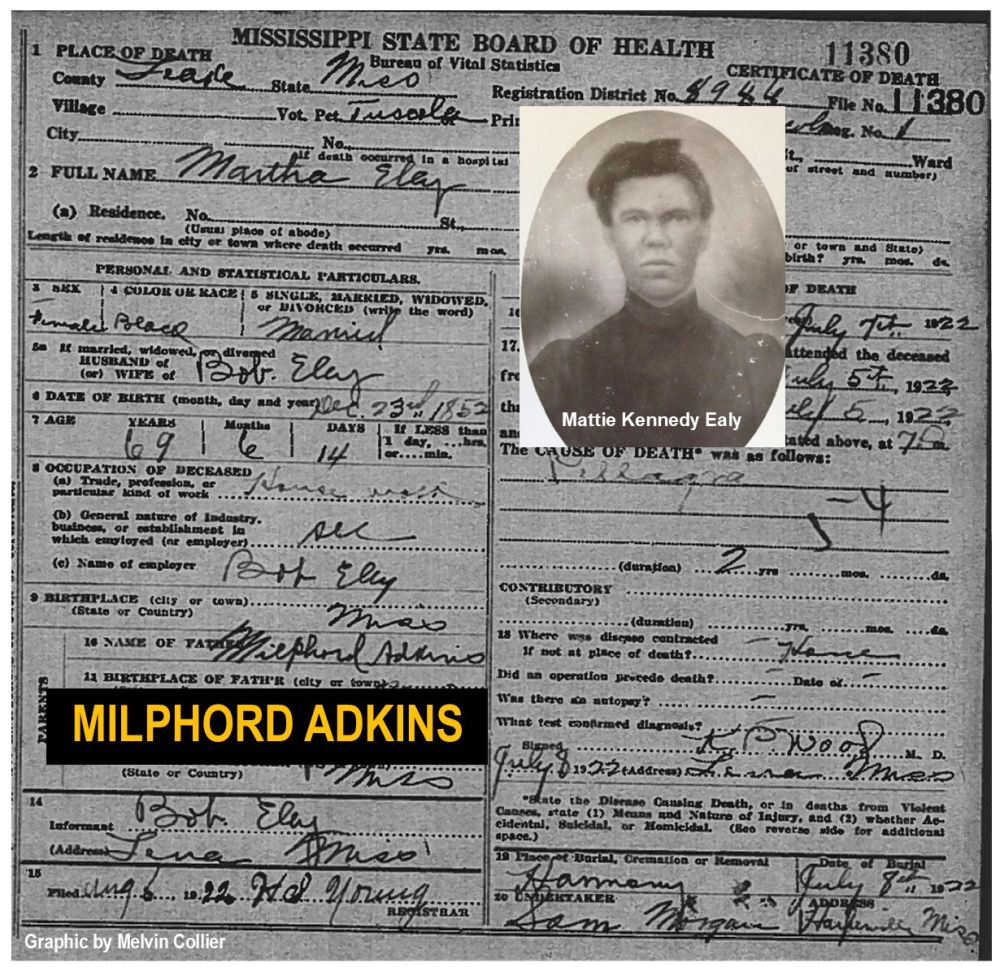 MISSISSIPPI STATE BOARD OF HEALTH
11380
1 PLACE OF DEATH
Bureau of Vital Statistics
CERTIFICATE OF DEATH
County Leake State Miss
Registration District No. File No. 11380
Village Vot. Pct. Tuscola
City No.
No. 1
If death occurred in a hospital
St., Ward
of street and number)
2 FULL NAME Martha Elay
(a) Residence. No. St.,
(Usual place of abode)
or town and State)
Length of residence in city or town where death occurred yrs. mos.
birth? yrs. mos. ds.
PERSONAL AND STATISTICAL PARTICULARS.
3 SEX 4 COLOR OR RACE 5 SINGLE, MARRIED, WIDOWED, or DIVORCED (write the word)
Female Black Married
5a If married, widowed, or divorced
HUSBAND of
(or) WIFE of Bob. Elay
6 DATE OF BIRTH (month, day and year) Dec. 23rd, 1852
7 AGE YEARS Months DAYS If LESS than
69 6 14 1 day, ....hrs.
or....min.
8 OCCUPATION OF DECEASED
(a) Trade, profession, or
particular kind of work House
(b) General nature of Industry,
business, or establishment in
which employed (or employer)
(c) Name of employer Bob Elay
9 BIRTHPLACE (city or town)
(State or Country) Miss
PARENTS
10 NAME OF FATHER Milphord Adkins
11 BIRTHPLACE OF FATH'R (city or town)
MILPHORD ADKINS
(State or Country) Miss
14
Informant Bob. Elay
(Address) Lena Miss
15
Filed Aug 1922 Young
REGISTRAR
Mattie Kennedy Ealy
OF DEATH
July 7th 1922
17.
attended the deceased
July 5th, 1922
July 5, 1922
stated above, at
The CAUSE OF DEATH* was as follows:
Pillagra
(duration) 2 yrs. mos. ds.
CONTRIBUTORY
(Secondary)
(duration) yrs. mos. ds.
18 Where was disease contracted
if not at place of death? Home
Did an operation precede death? Date of
Was there an autopsy?
What test confirmed diagnosis?
Signed Wood M. D.
July 8 1922 (Address) Lena Miss
*State the Disease Causing Death, or in deaths from Violent
Causes, state (1) Means and Nature of Injury, and (2) whether Ac-
cidental, Suicidal, or Homicidal. (See reverse side for additional
space.)
19 Place of Burial, Cremation or Removal Date of Burial
Harmony July 8th 1922
20 UNDERTAKER ADDRESS
Sam Morgan Miss
Graphic by Melvin Collier